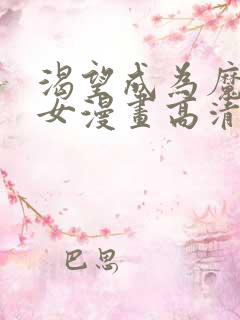 渴望成为魔
女漫畫高清
巴思